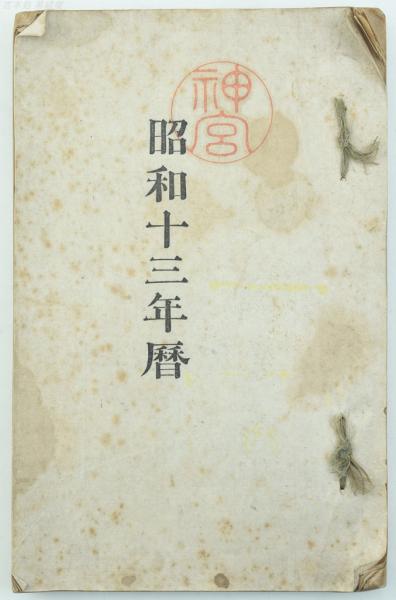 神宮
昭和十三年暦